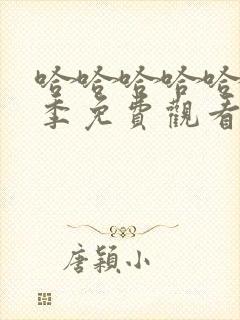 哈哈哈哈哈
季免費觀看
唐穎小